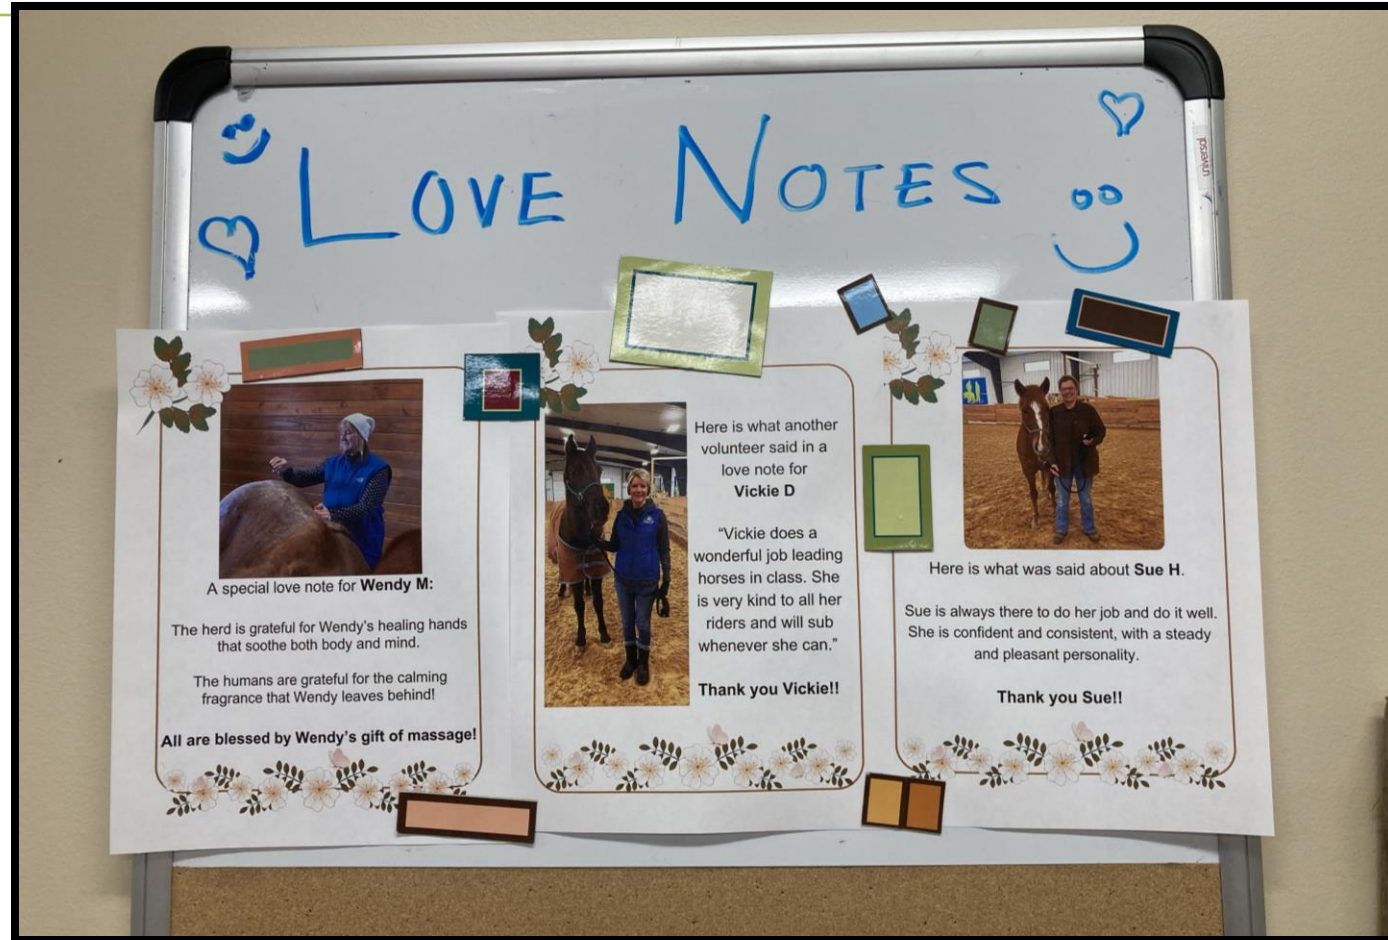 LOVE NOTES
A special love note for Wendy M:
The herd is grateful for Wendy's healing hands
that soothe both body and mind.
The humans are grateful for the calming
fragrance that Wendy leaves behind!
All are blessed by Wendy's gift of massage!
Here is what another
volunteer said in a
love note for
Vickie D
“Vickie does a
wonderful job leading
horses in class. She
is very kind to all her
riders and will sub
whenever she can.”
Thank you Vickie!!
Here is what was said about Sue H.
Sue is always there to do her job and do it well.
She is confident and consistent, with a steady
and pleasant personality.
Thank you Sue!!